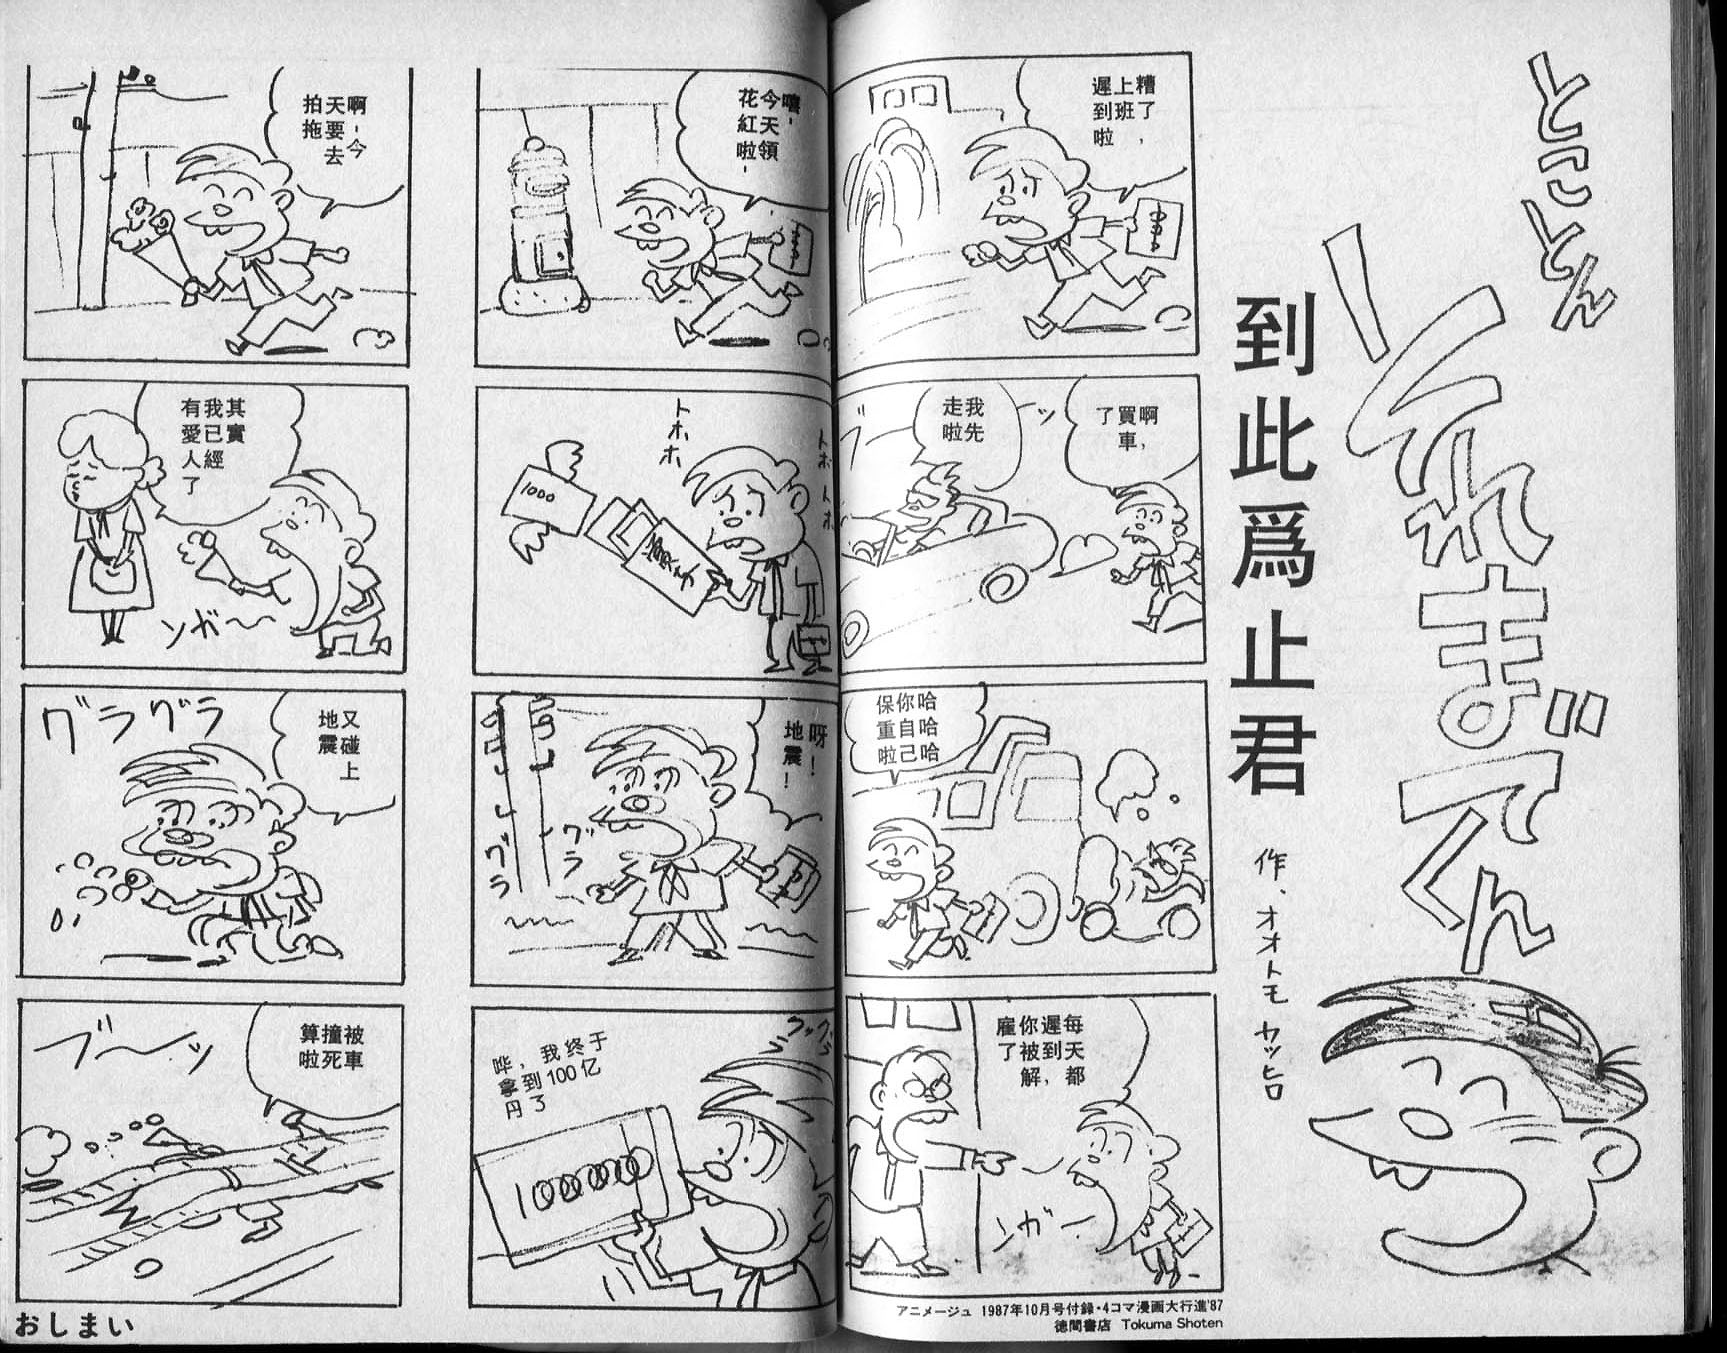 とことん
それまでん
到此爲止君
作、オオトモヤッヒロ
糟了，
上班
遲到啦
啊，
買車
了
我先
走啦
ブーッ
哈哈哈
你自己
保重啦
每天都
遲到，
你被解
雇了
ンガー
アニメージュ 1987年10月号付録・4コマ漫画大行進'87
徳間書店 Tokuma Shoten
嘻，
今天領
花紅啦，
トホホ
トホトホ
1000
賞与
呀！
地震！
グラ
グラ
哗，我终于
拿到100亿
円了
100000
啊，今
天要去
拍拖
其實
我已經
有愛人了
ンガ〜
又碰上
地震
グラグラ
被車
撞死
算啦
ブ〜ッ
おしまい